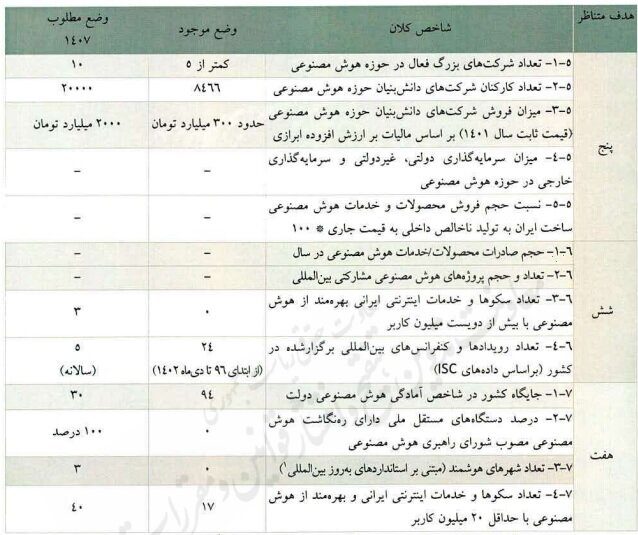 هدف متناظر
شاخص کلان
وضع موجود
وضع مطلوب
۱۴۰۷
پنج
۵-۱- تعداد شرکت‌های بزرگ فعال در حوزه هوش مصنوعی
کمتر از ۵
۱۰
۵-۲- تعداد کارکنان شرکت‌های دانش‌بنیان حوزه هوش مصنوعی
۸۴۶۶
۲۰۰۰۰
۵-۳- میزان فروش شرکت‌های دانش‌بنیان حوزه هوش مصنوعی
(قیمت ثابت سال ۱۴۰۱) بر اساس مالیات بر ارزش افزوده ابرازی
حدود ۳۰۰ میلیارد تومان
۲۰۰۰ میلیارد تومان
۵-۴- میزان سرمایه‌گذاری دولتی، غیردولتی و سرمایه‌گذاری
خارجی در حوزه هوش مصنوعی
–
–
۵-۵- نسبت حجم فروش محصولات و خدمات هوش مصنوعی
ساخت ایران به تولید ناخالص داخلی به قیمت جاری * ۱۰۰
–
–
شش
۶-۱- حجم صادرات محصولات/خدمات هوش مصنوعی در سال
–
–
۶-۲- تعداد و حجم پروژه‌های هوش مصنوعی مشارکتی بین‌المللی
–
–
۶-۳- تعداد سکوها و خدمات اینترنتی ایرانی بهره‌مند از هوش
مصنوعی با بیش از دویست میلیون کاربر
۰
۳
۶-۴- تعداد رویدادها و کنفرانس‌های بین‌المللی برگزارشده در
کشور (براساس داده‌های ISC)
۲۴
(از ابتدای ۹۶ تا دی‌ماه ۱۴۰۲)
۵
(سالانه)
هفت
۷-۱- جایگاه کشور در شاخص آمادگی هوش مصنوعی دولت
۹۴
۳۰
۷-۲- درصد دستگاه‌های مستقل ملی دارای ره‌نگاشت هوش
مصنوعی مصوب شورای راهبری هوش مصنوعی
۰
۱۰۰ درصد
۷-۳- تعداد شهرهای هوشمند (مبتنی بر استانداردهای به‌روز بین‌المللی۱)
۰
۳
۷-۴- تعداد سکوها و خدمات اینترنتی ایرانی و بهره‌مند از هوش
مصنوعی با حداقل ۲۰ میلیون کاربر
۱۷
۴۰